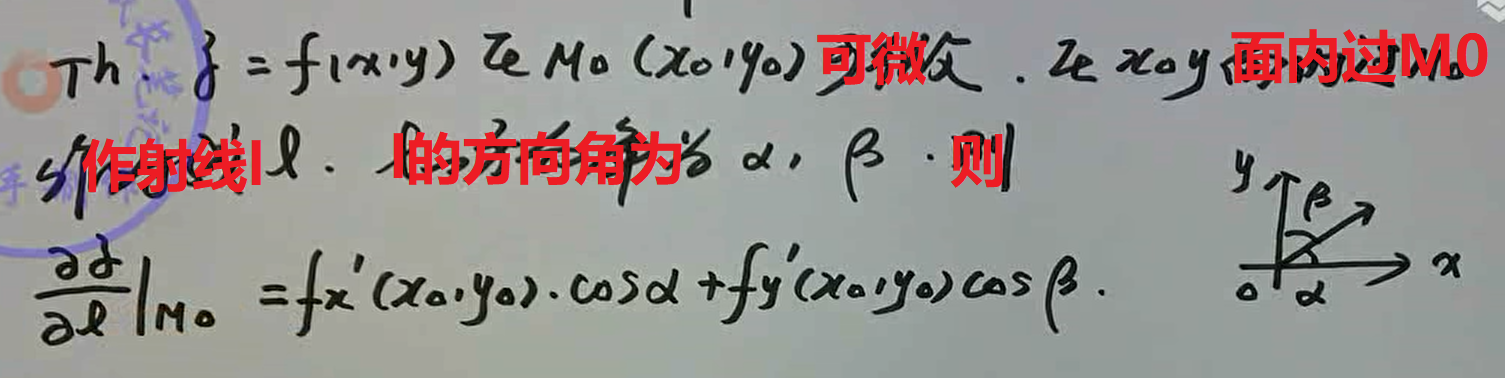 Th. z = f(x,y) 在 M0 (x0,y0) 可微. 在 x0y 面内过M0
作射线l. l的方向角为 α, β. 则
∂z/∂l|M0 = fx'(x0,y0)·cosα + fy'(x0,y0)cosβ.
y β
0 α x